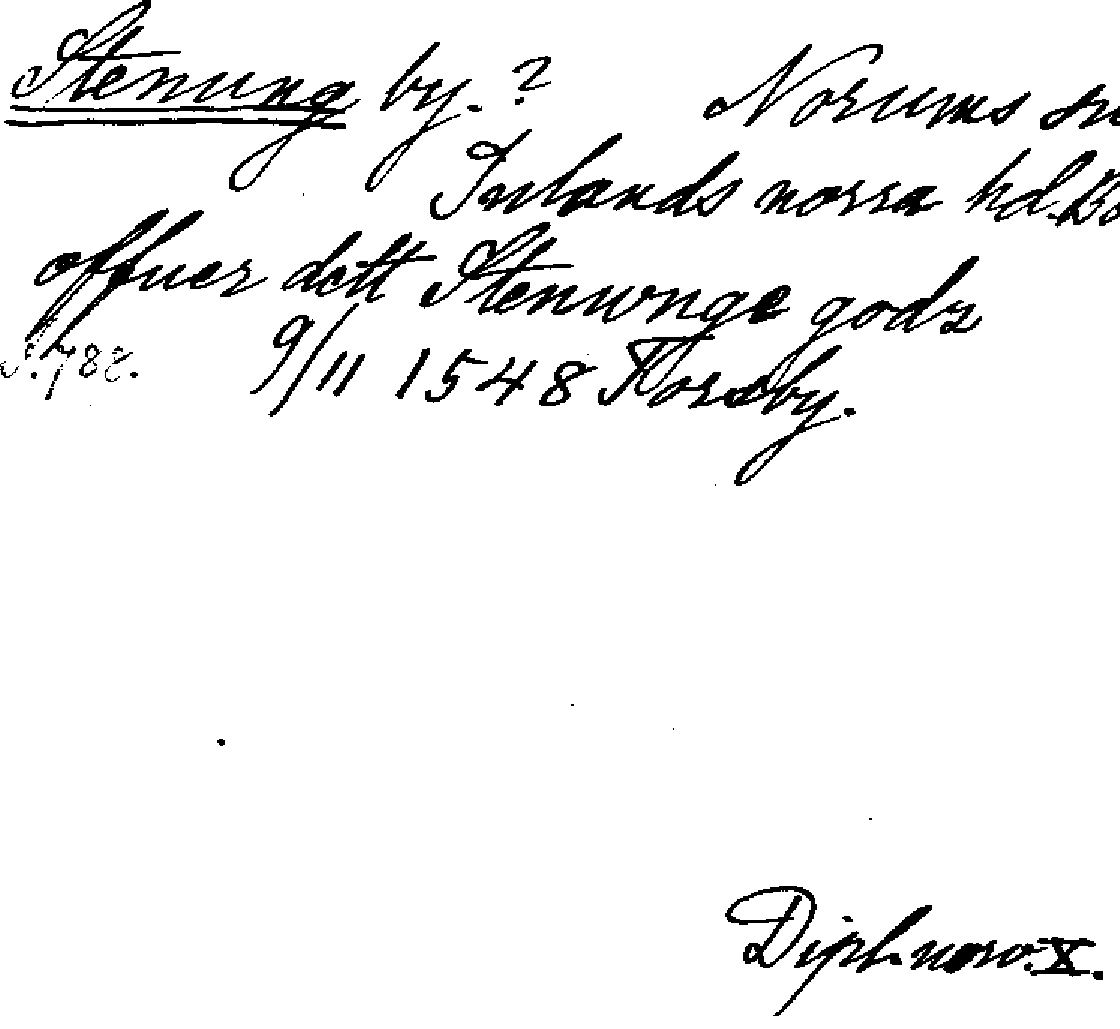 Stenung by. ? Norums sn
Inlands norra hd. Bo
offuer dett Stenwnge godz
S. 788. 9/11 1548 Forsby.
Dipl. norv. X.